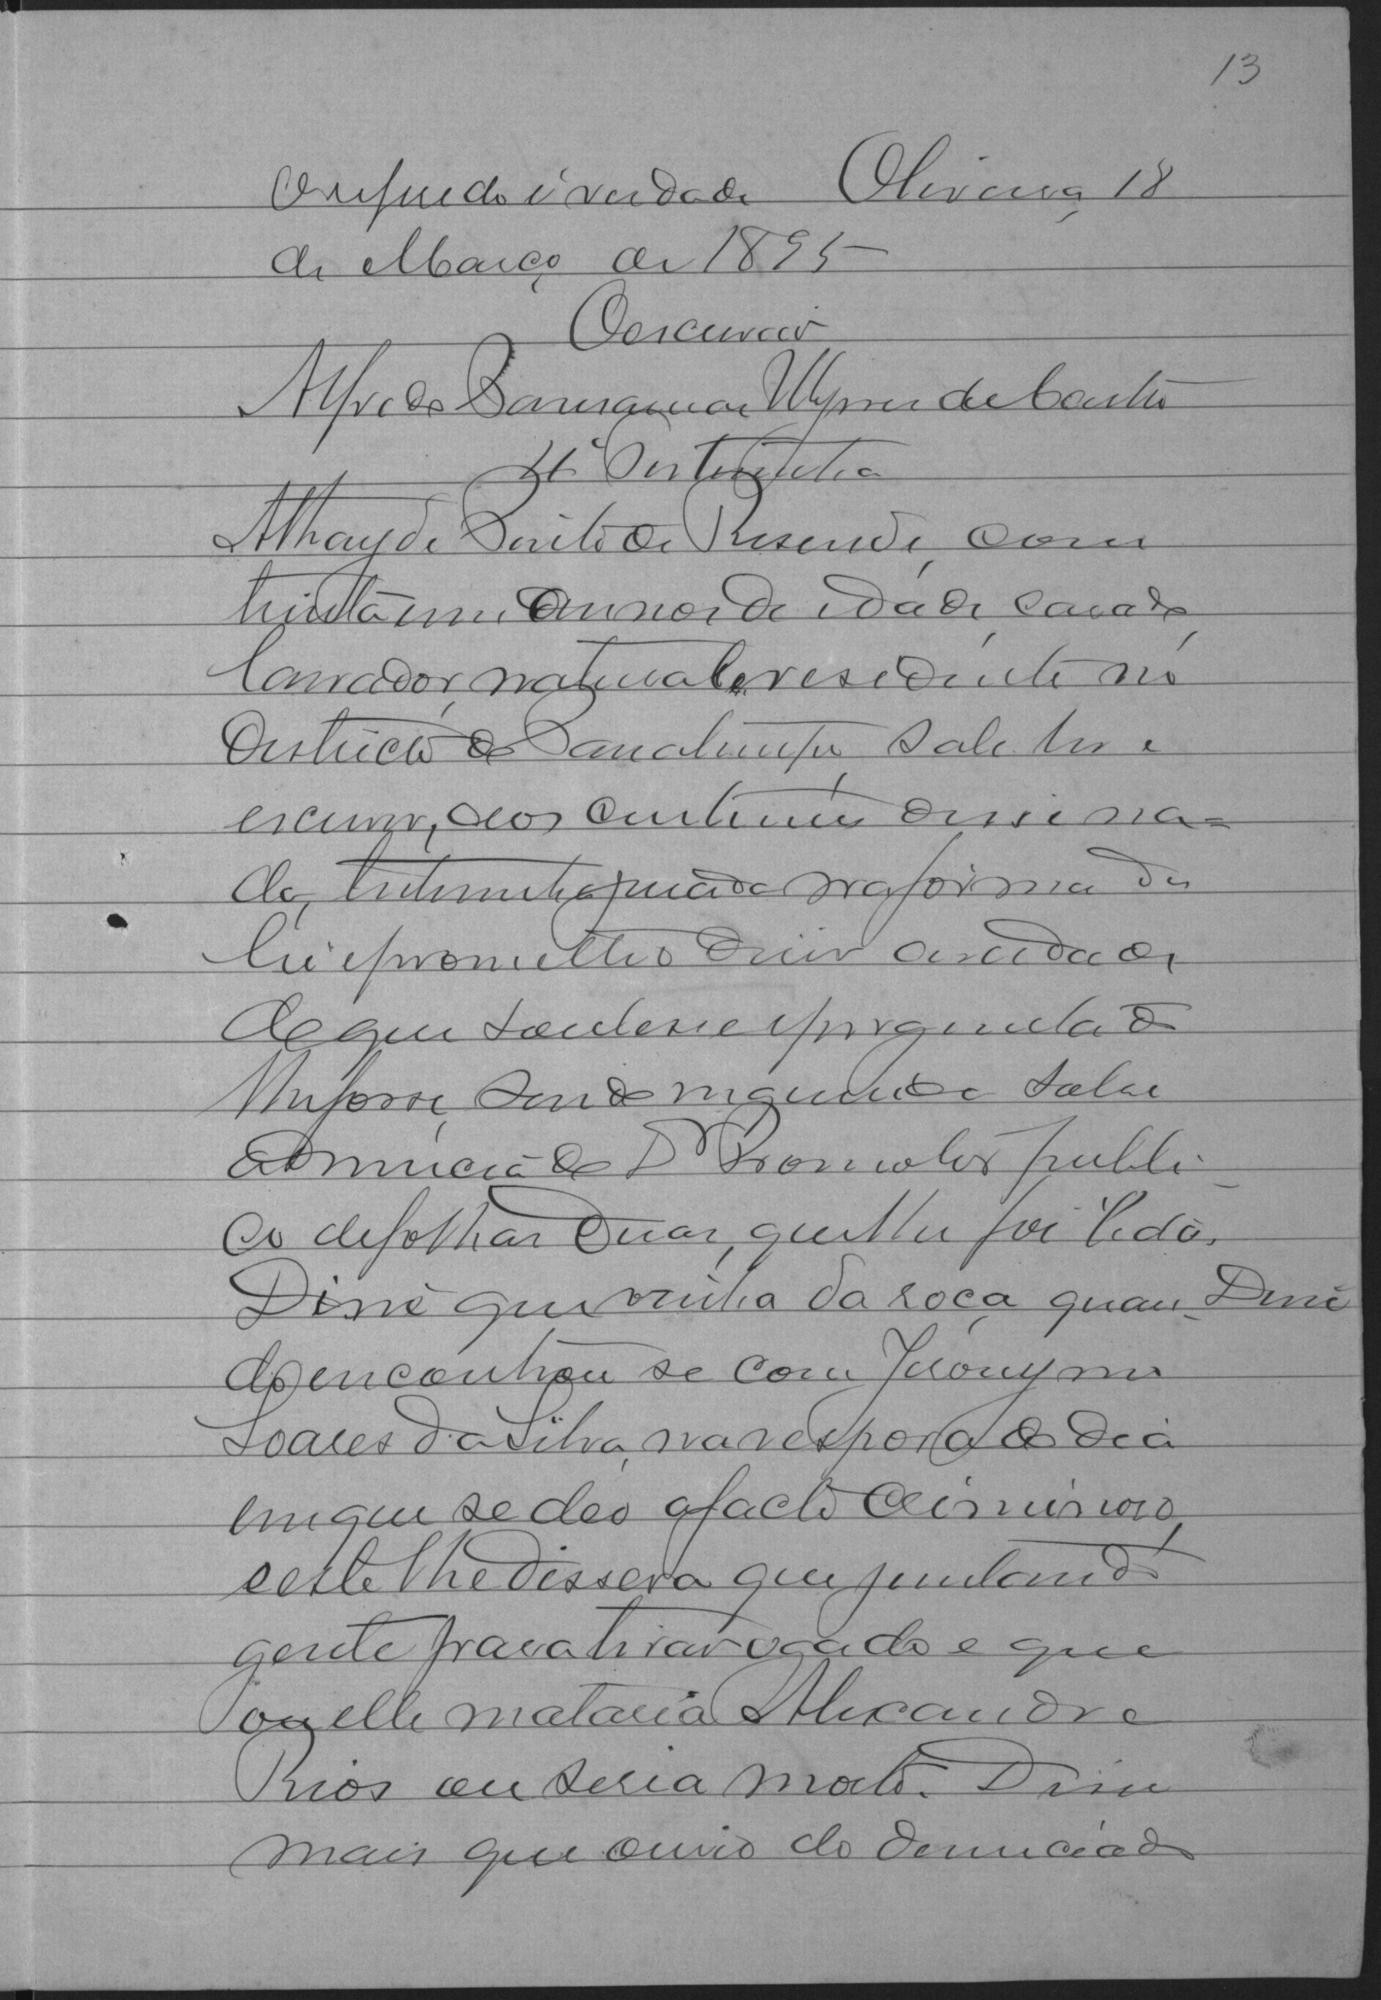 13
O referido é verdade Oliveira 18
de Março de 1895
O escrivão
Alfredo Ulysses de Castro
4ª Testemunha
Athayde Brito de Resende, com
trinta um annos de idade casado
lavrador, natural e residente no
Districto do sabe ler e
escrever, aos costumes disse na-
da, testemunha jurada na forma da
lei e prometteo dizer a verdade
do que soubesse e perguntado
lhe fosse, sendo inquirida sobre
a denuncia do Dr Promotor publi-
co de folhas duas, que lhe foi lida.
Disse que vinha da roça quan- Disse
do encontrou se com Jeronymo
Soares da Silva, na vespora do dia
em que se deo o facto criminoso,
e este lhe dissera que juntando
gente para tirar o gado e que
ou elle mataria Alexandre
Rios ou seria morto. Disse
mais que ouvio do denunciado